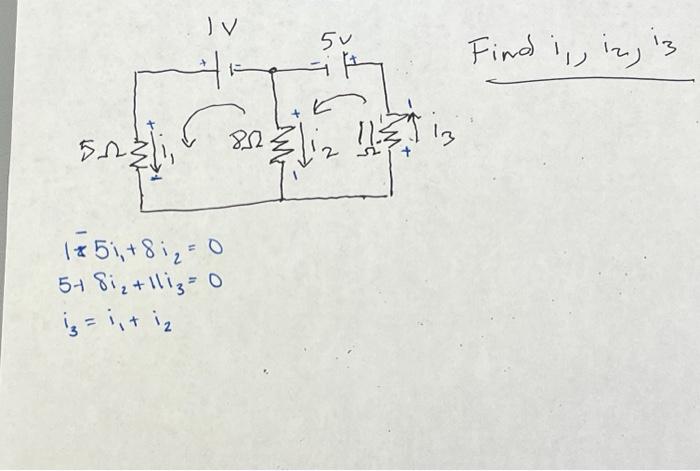 1V
5v
Find i₁, i₂, i₃
+ -
- +
5Ω
+
i₁
-
8Ω
+
i₂
-
11 Ω
-
+
i₃
1 - 5i₁ + 8i₂ = 0
5+ 8i₂ + 11i₃ = 0
i₃ = i₁ + i₂